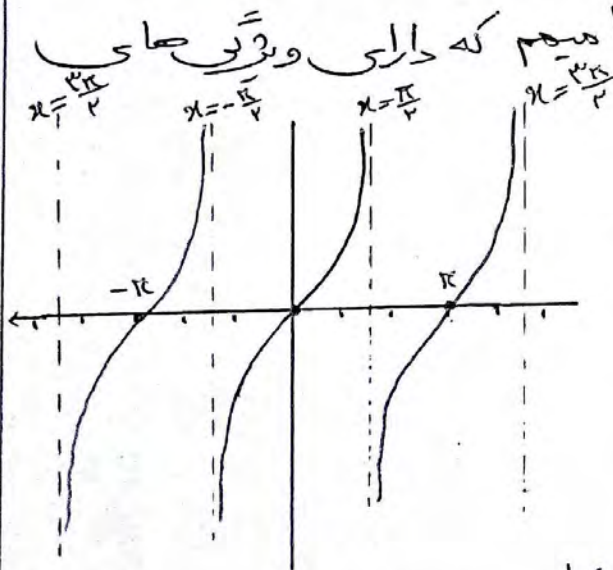 میهم که دارای ویژگی‌های
x=۳π/۲ x=-π/۲ x=π/۲ x=۳π/۲
-π π